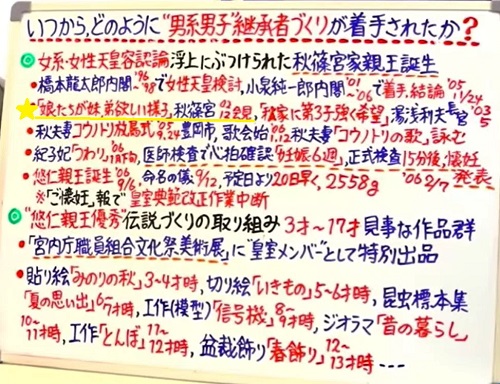 いつから、どのように"男系男子"継承者づくりが着手されたか?
◎女系・女性天皇容認論浮上にぶつけられた秋篠宮家親王誕生
・橋本龍太郎内閣'96~'98で女性天皇検討、小泉純一郎内閣'01~'06で着手、結論'05 11/24
・「娘たちが妹、弟欲しい様子」秋篠宮 会見、「秋家に第3子強く希望」湯浅利夫長官'03
・秋夫妻コウノトリ放鳥式'05 9/24豊岡市、歌会始'06 1/12秋夫妻「コウノトリの歌」詠む
・紀子妃「つわり」'06 1月下旬、医師検査で心拍確認「妊娠6週」、正式検査15分後、懐妊発表
・悠仁親王誕生'06 9/6、命名の儀9/12、予定日より20日早く、2558g '06 2/7
※「ご懐妊」報で皇室典範改正作業中断
◎"悠仁親王優秀"伝説づくりの取り組み 3才~17才見事な作品群
・「宮内庁職員組合文化祭美術展」に"皇室メンバー"として特別出品
・貼り絵「みのりの秋」3~4才時、切り絵「いきもの」5~6才時、昆虫標本集
「夏の思い出」6~7才時、工作(模型)「信号機」8~9才時、ジオラマ「昔の暮らし」
10~11才時、工作「とんぼ」11~12才時、盆栽飾り「春飾り」12~13才時---